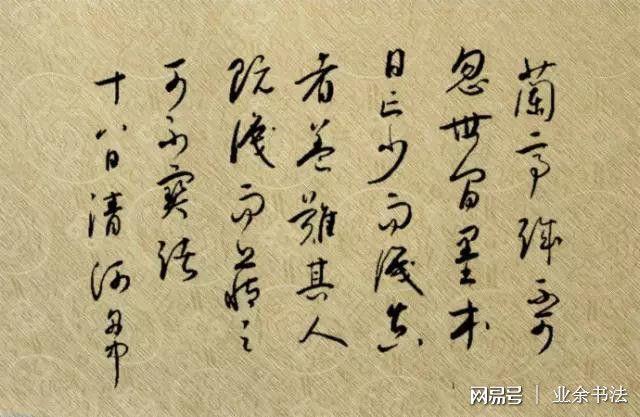 蘭亭誠不可
忽世間墨本
日亡少而識真
者蓋難其人
既識而藏之
可不寶諸
十八日清河舟中
网易号 | 业余书法